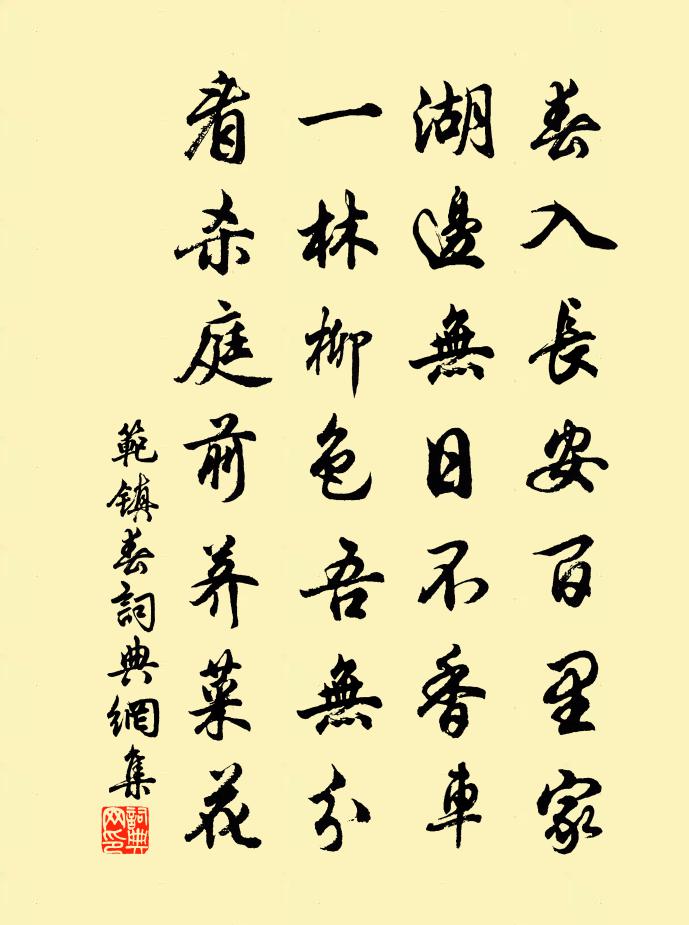 春入長安百里家
湖邊無日不香車
一林柳色吾無分
看殺庭前荠菜花
範镇春詞典網集
詞典网印